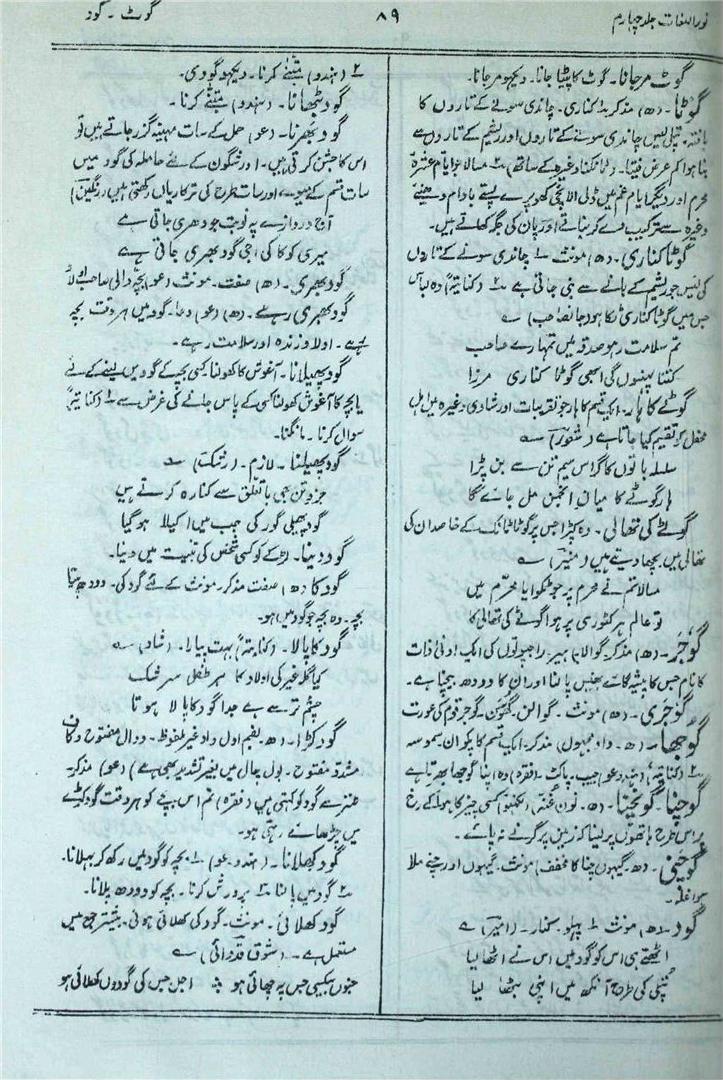 نوراللغات جلد چہارم
۸۹
گوٹ ۔ گود
گوٹ مر جانا۔ گوٹ کا پِٹا جانا۔ دیکھو مر جانا۔
گوٹا۔ (ھ) مذکر ۱؎ کناری۔ چاندی سونے کے تاروں کا
بافتہ۔ پتلی لیس چاندی سونے کے تاروں اور ریشم کے تاروں سے
بنا ہوا کم عرض فیتا۔ (ٹانکنا وغیرہ کے ساتھ) ۲؎ مسالا جو ایام عشرۂ
محرم اور دیگر ایام غم میں ڈلی الائچی کھوپرے پستے بادام دھنیے
وغیرہ سے ترکیب دے کر بناتے اور پان کی جگہ کھاتے ہیں۔
گوٹا کناری۔ (ھ) مونث ۱؎ چاندی سونے کے تاروں
کی لیس جو ریشم کے بانے سے بنی جاتی ہے ۲؎ (کنایۃً) وہ لباس
جس میں گوٹا کناری ٹنکا ہو (جانصاحب) ؎
تم سلامت رہو صدقہ میں تمہارے صاحب
کتنا پہنوں گی ابھی گوٹا کناری مرزا
گوٹے کا ہار۔ ایک قسم کا ہار جو تقریبات اور شادی وغیرہ میں اہل
محفل کو تقسیم کیا جاتا ہے (شعور) ؎
سلسلہ باتوں کا گر اس سیم تن سے بن پڑا
ہار گوٹے کا میانِ انجمن مل جائے گا
گوٹے کی تھالی۔ وہ کپڑا جس پر گوٹا ٹانک کے خاصدان کی
تھالی میں بچھا دیتے ہیں (منیر) ؎
مسالا تم نے محرم پر جو ٹکوایا محرّم میں
تو عالم ہر کٹوری پر ہوا گوٹے کی تھالی کا
گوجر۔ (ھ) مذکر۔ گوالا۔ اہیر۔ راجپوتوں کی ایک ادنیٰ ذات
کا نام جس کا پیشہ گائے بھینس پالنا اور ان کا دودھ بیچنا ہے۔
گوجری۔ (ھ) مونث۔ گوالن۔ گھوسن۔ گوجر قوم کی عورت
گوجھا۔ (ھ۔ واو مجہول) مذکر۔ ایک قسم کا پکوان سموسہ
۲؎ (کنایۃً) (ہندو۔ عو) جیب۔ پاکٹ۔ (فقرہ) وہ اپنا گوجھا بھرتا ہے
گوچنا۔ گونچنا۔ (ھ۔ نون غنہ) (لکھنؤ) کسی چیز کا ہوا کے رخ
پر اس طرح ہاتھوں پر لینا کہ زمین پر گرنے نہ پائے۔
گوچنی۔ (ھ۔ گیہوں چنا کا مخفف) مونث۔ گیہوں اور چنے ملا
ہوا غلہ۔
گود۔ (ھ) مونث ۱؎ پہلو۔ کنار۔ (امیر) ؎
اٹھتے ہی اس کو گود میں اس نے اٹھا لیا
پُتلی کی طرح آنکھ میں اپنی بٹھا لیا
۲؎ (ہندو) متبنّٰی کرنا۔ دیکھو گودی۔
گود بٹھانا۔ (ہندو) متبنّٰی کرنا۔
گود بھرنا۔ (عو) حمل کے سات مہینہ گزر جاتے ہیں تو
اس کا جشن کرتی ہیں۔ اور شگون کے لئے حاملہ کی گود میں
سات قسم کے میوے اور سات طرح کی ترکاریاں رکھتی ہیں (رنگین)
آج دروازے پہ نوبت جو دھری جاتی ہے
میری کوکا کی اجی گود بھری جاتی ہے
گود بھری۔ (ھ) صفت۔ مونث (عو) بچّہ والی صاحب اولاد
گود بھری رہے۔ (ھ) (عو) دعا۔ گود میں ہر وقت بچہ
رہے۔ اولاد زندہ اور سلامت رہے۔
گود پھیلانا۔ آغوش کا کھولنا کسی بچہ کے گود میں لینے کے لئے
یا بچہ کا آغوش کھولنا کسی کے پاس جانے کی غرض سے ۲؎ (کنایۃً)
سوال کرنا۔ مانگنا۔
گود پھیلنا۔ لازم۔ (رشک) ؎
جزو تن بھی با تعلق سے کنارہ کرتے ہیں
گود پھیلی گور کی جب میں اکیلا ہو گیا
گود دینا۔ لڑکے کو کسی شخص کی تبنیت میں دینا۔
گود کا (ھ) صفت مذکر۔ مونث کے لئے گود کی۔ دودھ پیتا
بچہ۔ وہ بچہ جو گود میں ہو۔
گود کا پالا۔ (کنایۃً) بہت پیارا۔ (شاد) ؎
کیا گلہ غیر کی اولاد کا ہر طفل سرشک
چشم تر سے ہے جدا گود کا پالا ہوتا
گودکڑا۔ (ھ۔ بضم اول واو غیر ملفوظ۔ و دال مفتوح و کاف
مشدد مفتوح۔ بول چال میں بغیر تشدید بھی ہے) (عو) مذکر۔
طنز سے گود کو کہتی ہیں (فقرہ) تم اس بچے کو ہر وقت گودکڑے
میں چڑھائے رہتی ہو۔
گود کھلانا۔ (ہندو۔ عو) ۱؎ بچہ کو گود میں رکھ کر بہلانا۔
۲؎ گود میں پالنا ۳؎ پرورش کرنا۔ بچہ کو دودھ پلانا۔
گود کھلائی۔ مونث۔ گود کی کھلائی ہوئی۔ بیشتر جمع میں
مستعمل ہے۔ (شوق قدوائی) ؎
جنوں بیکسی جس پہ چھائی ہو ؞ اجل جس کی گودوں کھلائی ہو